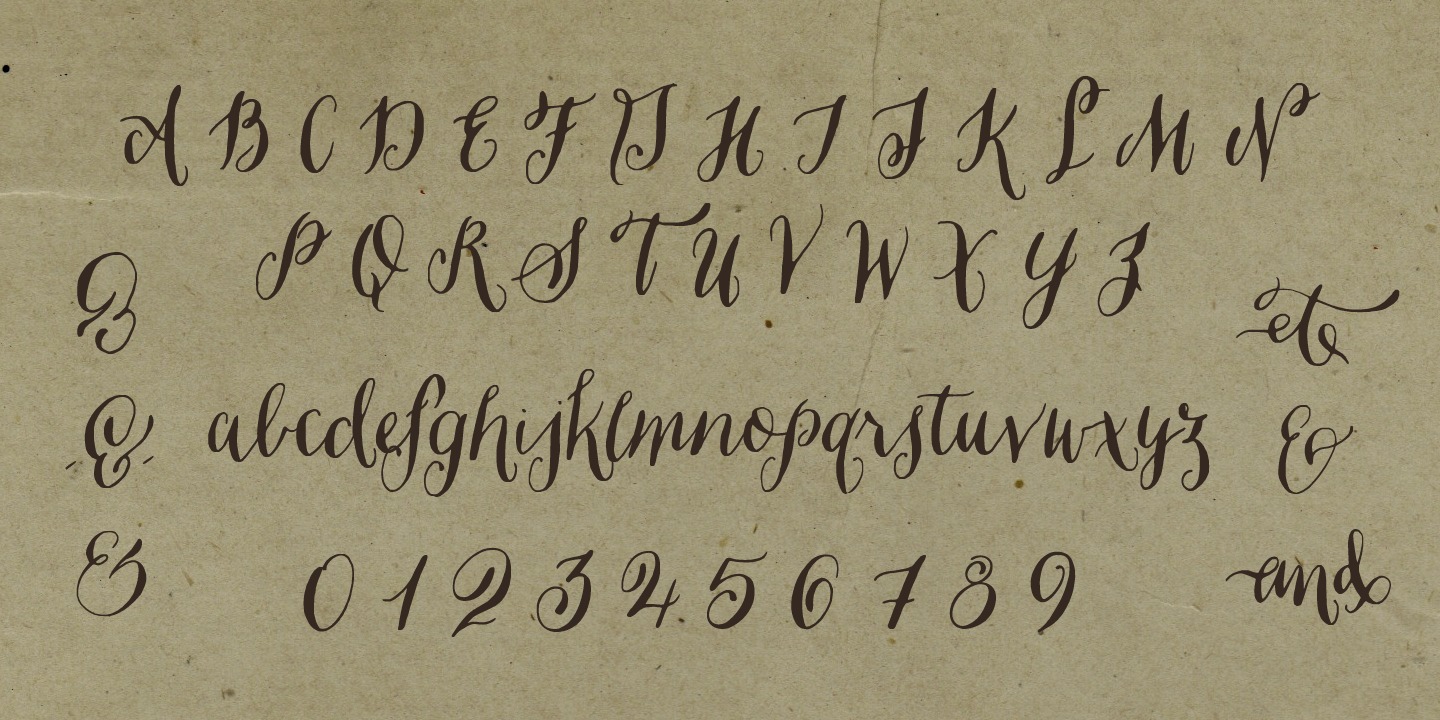 A B C D E F G H I J K L M N
P Q R S T U V W X Y Z
&
et
& abcdefghijklmnopqrstuvwxyz &
& 0 1 2 3 4 5 6 7 8 9 and